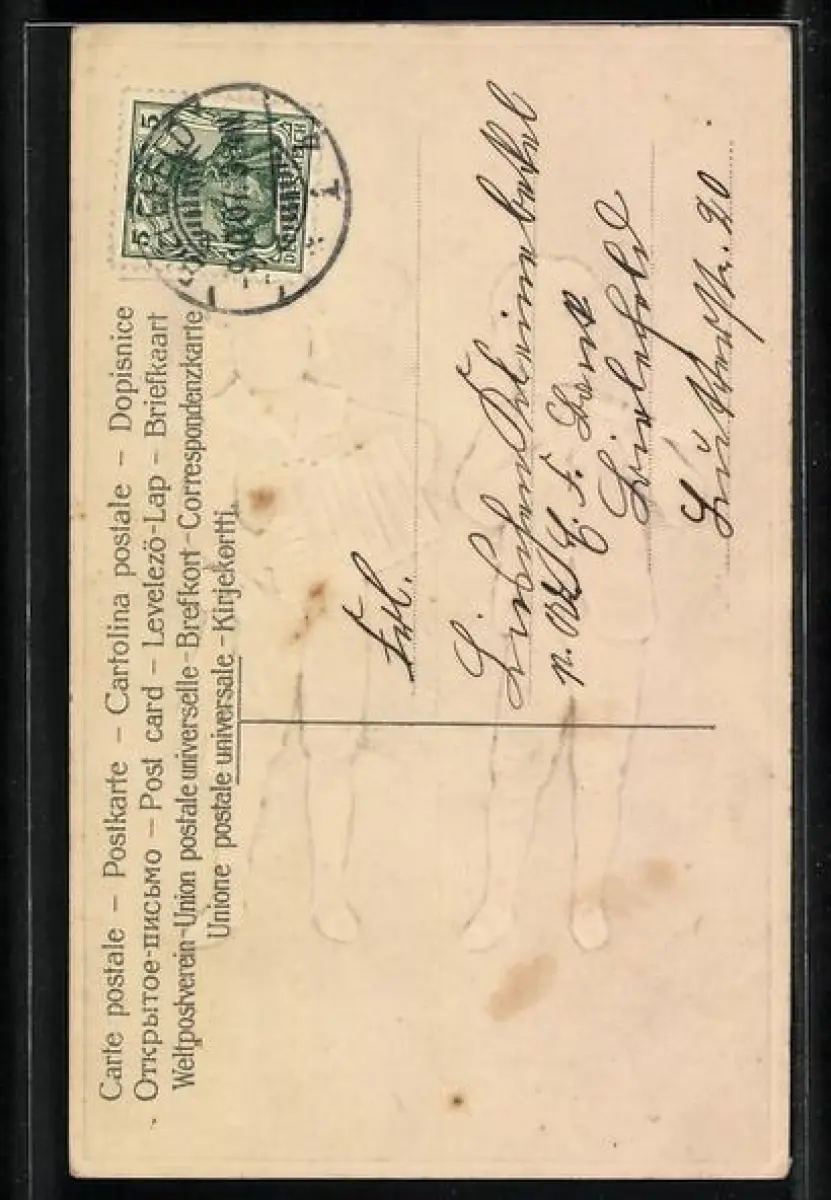 Carte postale – Postkarte – Cartolina postale – Dopisnice
Открытое-письмо – Post card – Levelezö-Lap – Briefkaart
Weltpostverein-Union postale universelle-Brefkort-Correspondenzkarte
Unione postale universale-Kirjekortti.
5 5
BIELEFELD
Frl.
Lieschen
p. Ad. C. F.
Bielefeld
20